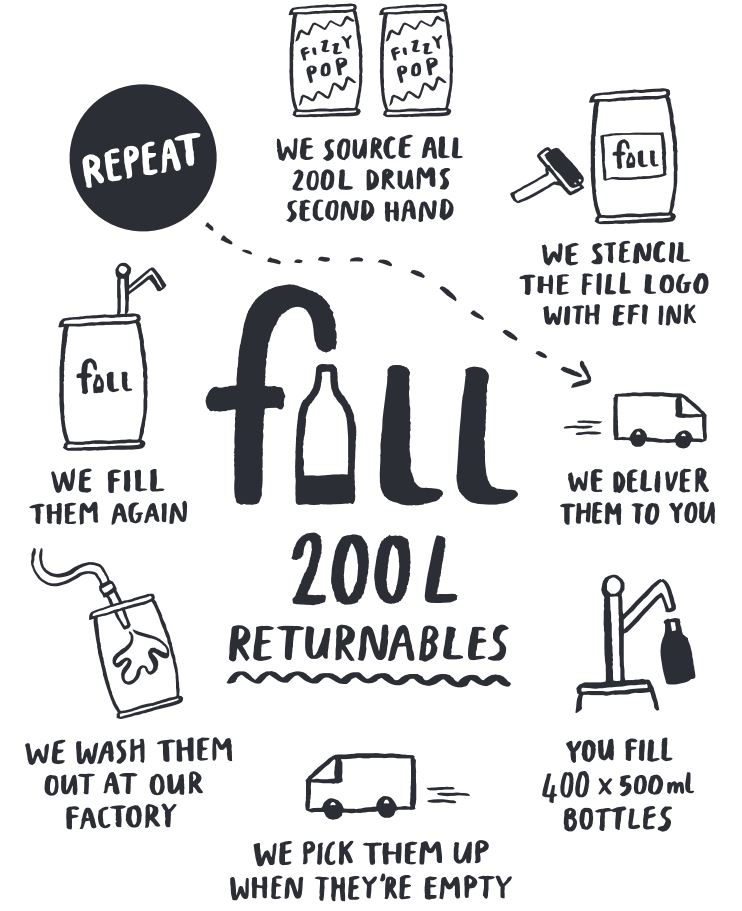 FIZZY
POP
FIZZY
POP
WE SOURCE ALL
200L DRUMS
SECOND HAND
fill
WE STENCIL
THE FILL LOGO
WITH EFI INK
WE DELIVER
THEM TO YOU
YOU FILL
400 x 500ml
BOTTLES
WE PICK THEM UP
WHEN THEY'RE EMPTY
WE WASH THEM
OUT AT OUR
FACTORY
fill
WE FILL
THEM AGAIN
REPEAT
fill
200L
RETURNABLES